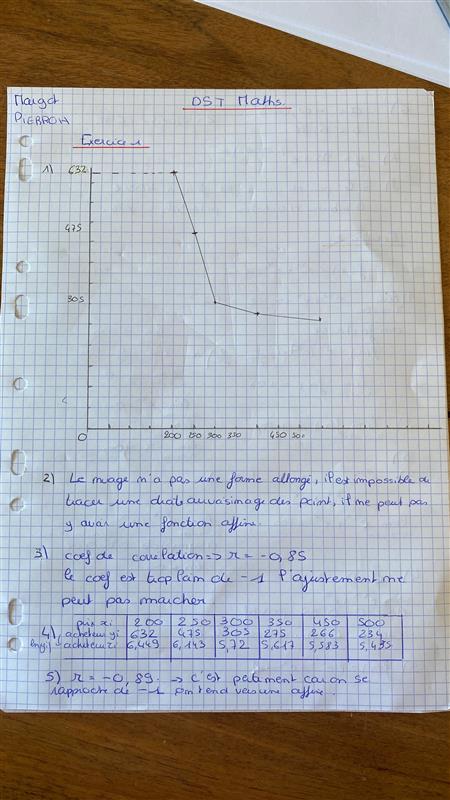 Margot
DST Maths.
PIERROH
Exercice 1
1) 632
475
305
0
200 250 300 350 450 500
2) Le nuage n'a pas une forme allongé, il est impossible de
tracer une droite au voisinage des point, il ne peut pas
y avoir une fonction affine.
3) coef de correlation => r = -0,85
le coef est trop loin de -1 l'ajustement ne
peut pas marcher
prix xi 200 250 300 350 450 500
4) acheteur yi 632 475 305 275 266 234
ln yi acheteur zi 6,449 6,143 5,72 5,617 5,583 5,455
5) r = -0,89. -> c'est car on se
rapproche de -1 on tend vers une affine.